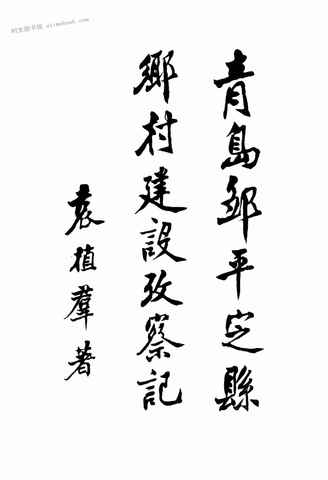 青島鄒平定縣
鄉村建設攷察記
袁植羣著